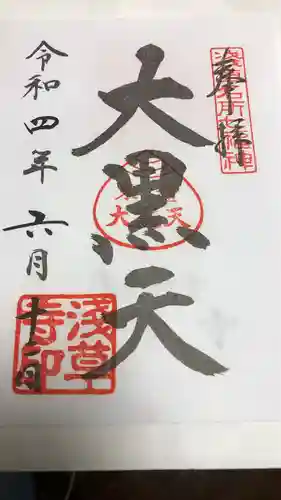 奉拝
浅草名所七福神
大黒天
大黒天
令和四年六月十二日
浅草寺印